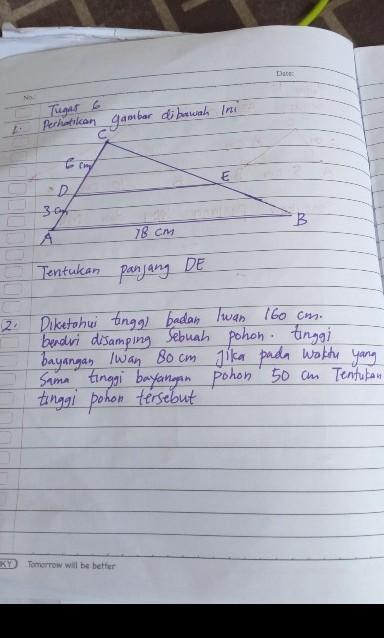 Date:
No.:
Tugas 6
1. Perhatikan gambar dibawah Ini
C
6 cm
D
E
3 cm
A
B
18 cm
Tentukan panjang DE
2. Diketahui tinggi badan Iwan 160 cm.
berdiri disamping Sebuah pohon. tinggi
bayangan Iwan 80 cm Jika pada waktu yang
Sama tinggi bayangan pohon 50 cm Tentukan
tinggi pohon tersebut
KY Tomorrow will be better